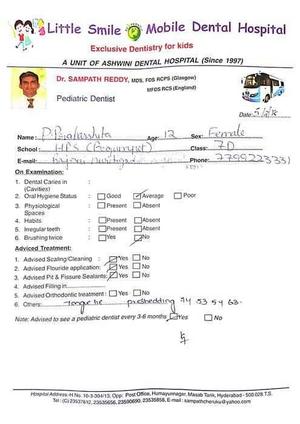 Little Smile Mobile Dental Hospital
Exclusive Dentistry for kids
A UNIT OF ASHWINI DENTAL HOSPITAL (Since 1997)
Dr. SAMPATH REDDY, MDS, FDS RCPS (Glasgow)
MFDS RCS (England)
Pediatric Dentist
Date:
Name: Age: 12 Sex: Female
School: HPS (Begumpet) Class: 7D
E-mail: Phone: 7799223331
On Examination:
1. Dental Caries in :
(Cavities)
2. Oral Hygiene Status : Good Average Poor
3. Physiological : Present Absent
Spaces
4. Habits : Present Absent
5. Irregular teeth : Present Absent
6. Brushing twice : Yes No
Adviced Treatment:
1. Advised Scaling/Cleaning : Yes No
2. Advised Flouride application: Yes No
3. Advised Pit & Fissure Sealants: Yes No
4. Advised Filling in
5. Advised Orthodontic treatment : Yes No
6. Others: Tongue tie
Note: Advised to see a pediatric dentist every 3-6 months Yes No
Hospital Address: H No. 10-3-304/13, Opp: Post Office, Humayunnagar, Masab Tank, Hyderabad - 500 028 T.S.